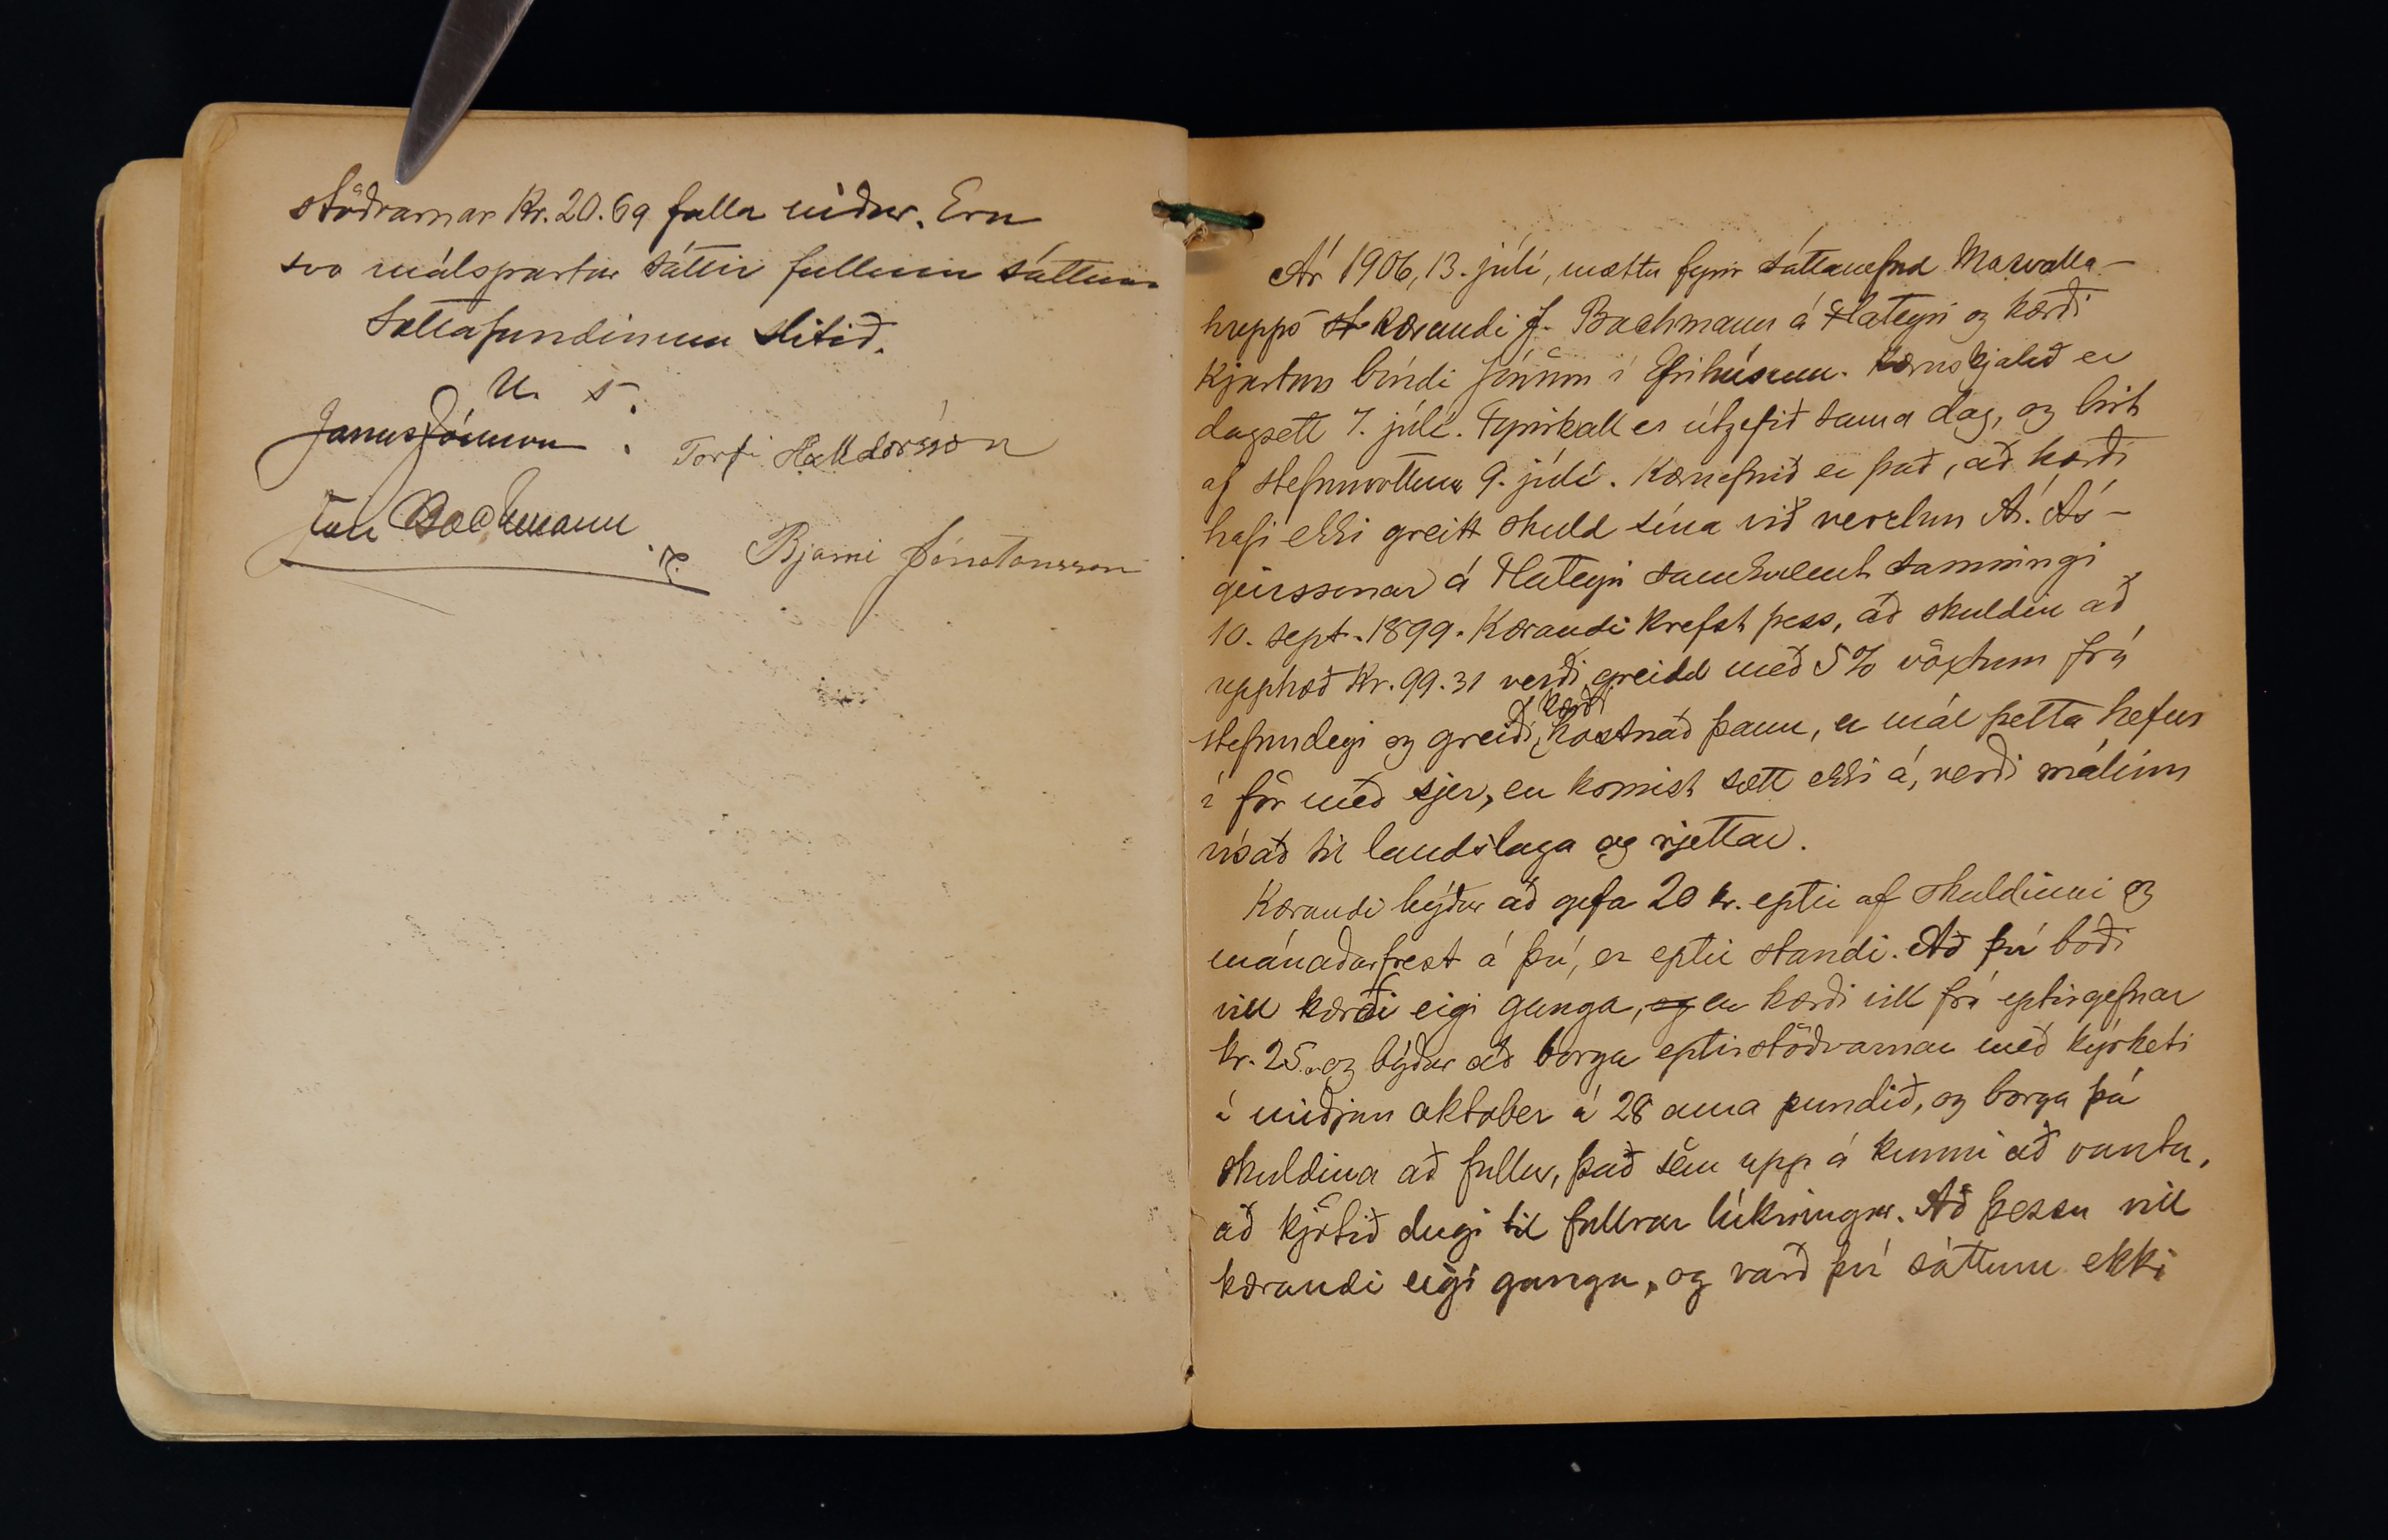 stöðvarnar Kr. 20.69 falla niður. Eru
svo málspartar sáttir fullum sáttum.
Sáttafundinum slitið.
U. s.
Janus Jónsson. Torfi Halldórsson
Jón Bachmann
Bjarni Jónatansson
Ár 1906, 13. júlí, mættu fyrir sáttanefnd Mosvalla-
hrepps st kærandi J. Bachmann á Flateyri og kærði
Kjartan bóndi í Efrihúsum. Kæruskjalið er
dagsett 7. júlí. Fyrirkall er útgefið sama dag, og birt
af stefnuvottum 9. júlí. Kæruefnið er það, að kærði
hafi ekki greitt skuld sína við verzlun Á. Ás-
geirssonar á Flateyri samkvæmt samningi
10. sept. 1899. Kærandi krefst þess, að skuldin að
upphæð Kr. 99.31 verði greidd með 5% vöxtum frá
stefnudegi og greiði kærði kostnað þann, er mál þetta hefur
í för með sjer, en komist sætt ekki á, verði málinu
vísað til landslaga og rjettar.
Kærandi býður að gefa 20 kr. eptir af skuldinni og
mánaðarfrest á því, er eptir standi. Að því boði
vill kærði eigi ganga, og en kærði vill fá eptirgefnar
kr. 25. og býður að borga eptirstöðvarnar með kýrketi
í miðjum oktober á 28 aura pundið, og borga þá
skuldina að fullu, það sem upp á kunni að vanta,
að kjötið dugi til fullrar lúkningar. Að þessu vill
kærandi eigi ganga, og varð því sáttum ekki